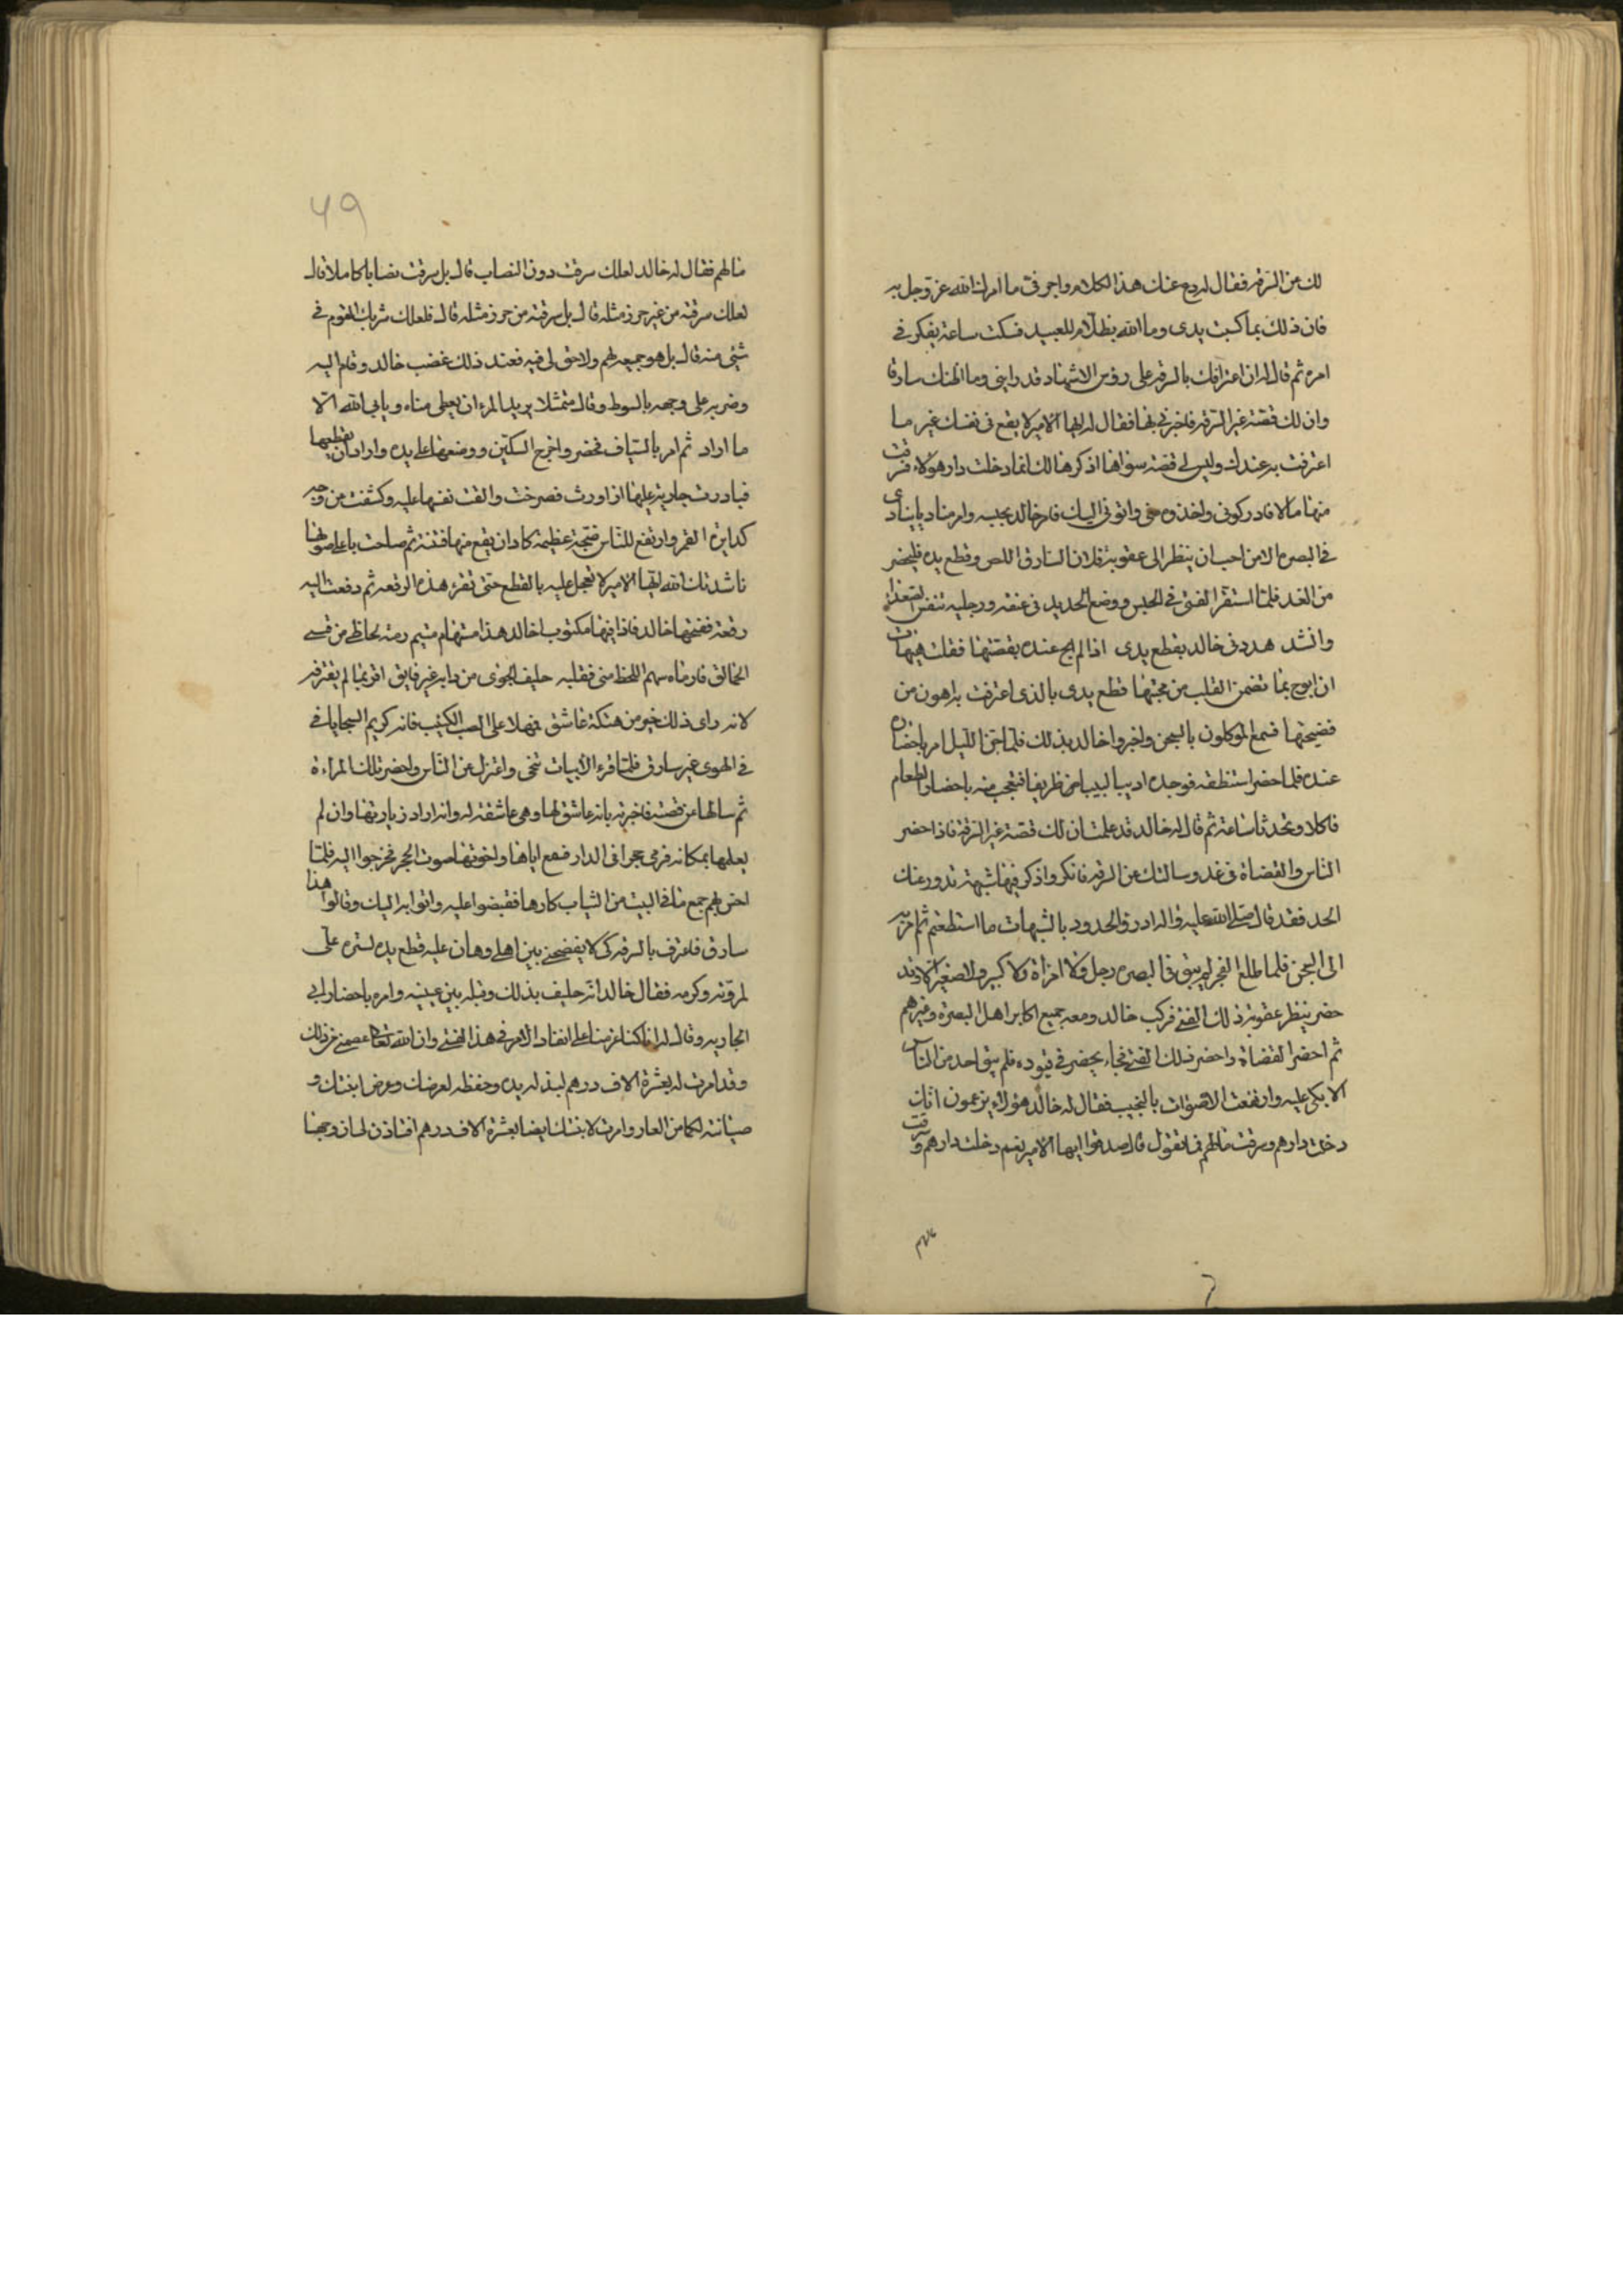 لك من السرقه فقال له دع عنك هذا الكلام واجر فى ما امرك الله عز وجل به
فان ذلك بما كسبت يدى وما الله بظلام للعبيد فسكت ساعة يفكر فى
امره ثم قال له ان اعترافك بالسرقه على رؤس الاشهاد قد رابنى وما اظنك سارقا
وان لك قصة غير السرقه فاخبرنى بها فقال له ايها الامير لا يقع فى نفسك غير ما
اعترفت به عندك وليس لى قصة سواها اذكرها لك انما دخلت دار هؤلاء فسرقت
منها مالا فادركونى واخذوه منى واتوا بى اليك فامر خالد بحبسه وامر مناديا ينادى
فى البصره الا من احب ان ينظر الى عقوبة فلان السارق اللص وقطع يده فليحضر
من الغد فلما استقر الفتى فى الحبس ووضع الحديد فى عنقه ورجليه تنفس الصعداء
وانشد هددنى خالد بقطع يدى اذا لم ابح عنده بقصتها فقلت هيهات
ان ابوح بما تضمن القلب من محبتها قطع يدى بالذى اعترفت به اهون من
فضيحتها فسمع الموكلون بالسجن واخبروا خالد بذلك فلما جن الليل امر باحضاره
عنده فلما حضر استنطقه فوجده اديبا لبيبا ظريفا فتعجب منه باحضار الطعام
فاكلا وتحدثا ساعة ثم قال له خالد قد علمت ان لك قصة غير السرقة فاذا حضر
الناس والقضاة فى غد وسالتك عن السرقه فانكر واذكر فيها شبهة تدور عنك
الحد فقد قال صلى الله عليه واله ادرؤا الحدود بالشبهات ما استطعتم ثم امر به
الى السجن فلما طلع الفجر لم يبق فى البصره رجل ولا امراة ولا كبير ولا صغير الا وقد
حضر ينظر عقوبة ذلك الفتى فركب خالد ومعه جميع اكابر اهل البصرة وغيرهم
ثم احضر القضاة واحضر ذلك الفتى فجاء يحضر فى قيوده فلم يبق احد من الناس
الا بكى عليه وارتفعت الاصوات بالنحيب فقال له خالد هؤلاء يزعمون انك
دخلت دارهم وسرقت مالهم فما تقول قال صدقوا ايها الامير نعم دخلت دارهم وسرقت
49
مالهم فقال له خالد لعلك سرقت دون النصاب قال بل سرقت نصابا كاملا قال
لعلك سرقته من غير حرز مثله قال بل سرقته من حرز مثله قال فلعلك شريك القوم فى
شئ منه قال بل هو جميعه لهم ولا حق لى فيه فعند ذلك غضب خالد وقام اليه
وضربه على وجهه بالسوط وقال متمثلا يريد المرء ان يعطى مناه ويابى الله الا
ما اراد ثم امر بالسياف فحضر واخرج السكين ووضعها على يده واراد ان يقطعها
فبادرت جارية عليها فصرخت والقت نفسها عليه وكشفت من وجه
كدايرة القمر وارتفع للناس ضجة عظيمة كاد ان يقع منها فتنة ثم صاحت باعلى صوتها
ناشدتك الله ايها الامير لا تعجل عليه بالقطع حتى تقرء هذه الرقعه ثم دفعت اليه
رقعة ففتحها خالد فاذا فيها مكتوب اخالد هذا مستهام متيم رمته لحاظى من قسى
الحمالق فارماه سهم اللحظ منى فقلبه حليف الجوى من دايه غير فايق اقر بما لم يقترفه
لانه راى ذلك خير من هتكة عاشق فمهلا على الصب الكئيب فانه كريم السجايا فى
فى الهوى غير سارق فلما قرء الابيات تنحى واعتزل عن الناس واحضر تلك المراءة
ثم سالها عن قصته فاخبرته بانه عاشق لها وهى عاشقة له وانه اراد زيارتها وان لم
يعلمها بمكانه فرمى حجرا فى الدار فسمع اباها واخوتها صوت الحجر فخرجوا اليه فلما
احس بهم جمع ما فى البيت من الثياب كارها فقبضوا عليه واتوا به اليك وقالوا هذا
سارق فاعترف بالسرقه كى لا يفضحنى بين اهلى وهان عليه قطع يده لستره على
لمروته وكرمه فقال خالد انه حليف بذلك وقبله بين عينيه وامره باحضار ابى
الجاريه وقال له انا كنا عزمنا على انفاد الامر فى هذا الفتى وان الله تعالى عصمنى من ذلك
وقد امرت له بعشرة الاف درهم لبذله يده وحفظه لعرضك وعرض ابنتك و
صيانته لكما من العار وامرت لابنتك ايضا بعشرة الاف درهم افتاذن لى ان زوجها